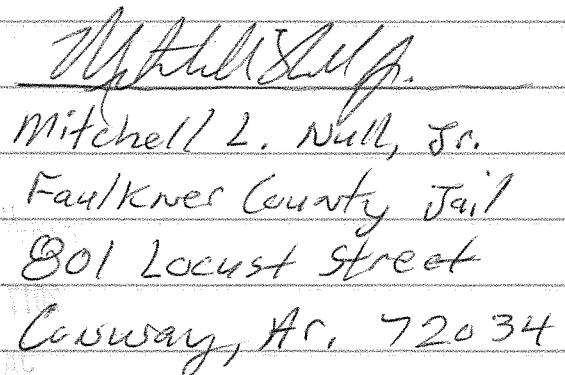 Mitchell L. Null, Jr.
Faulkner County Jail
801 Locust Street
Conway, Ar. 72034